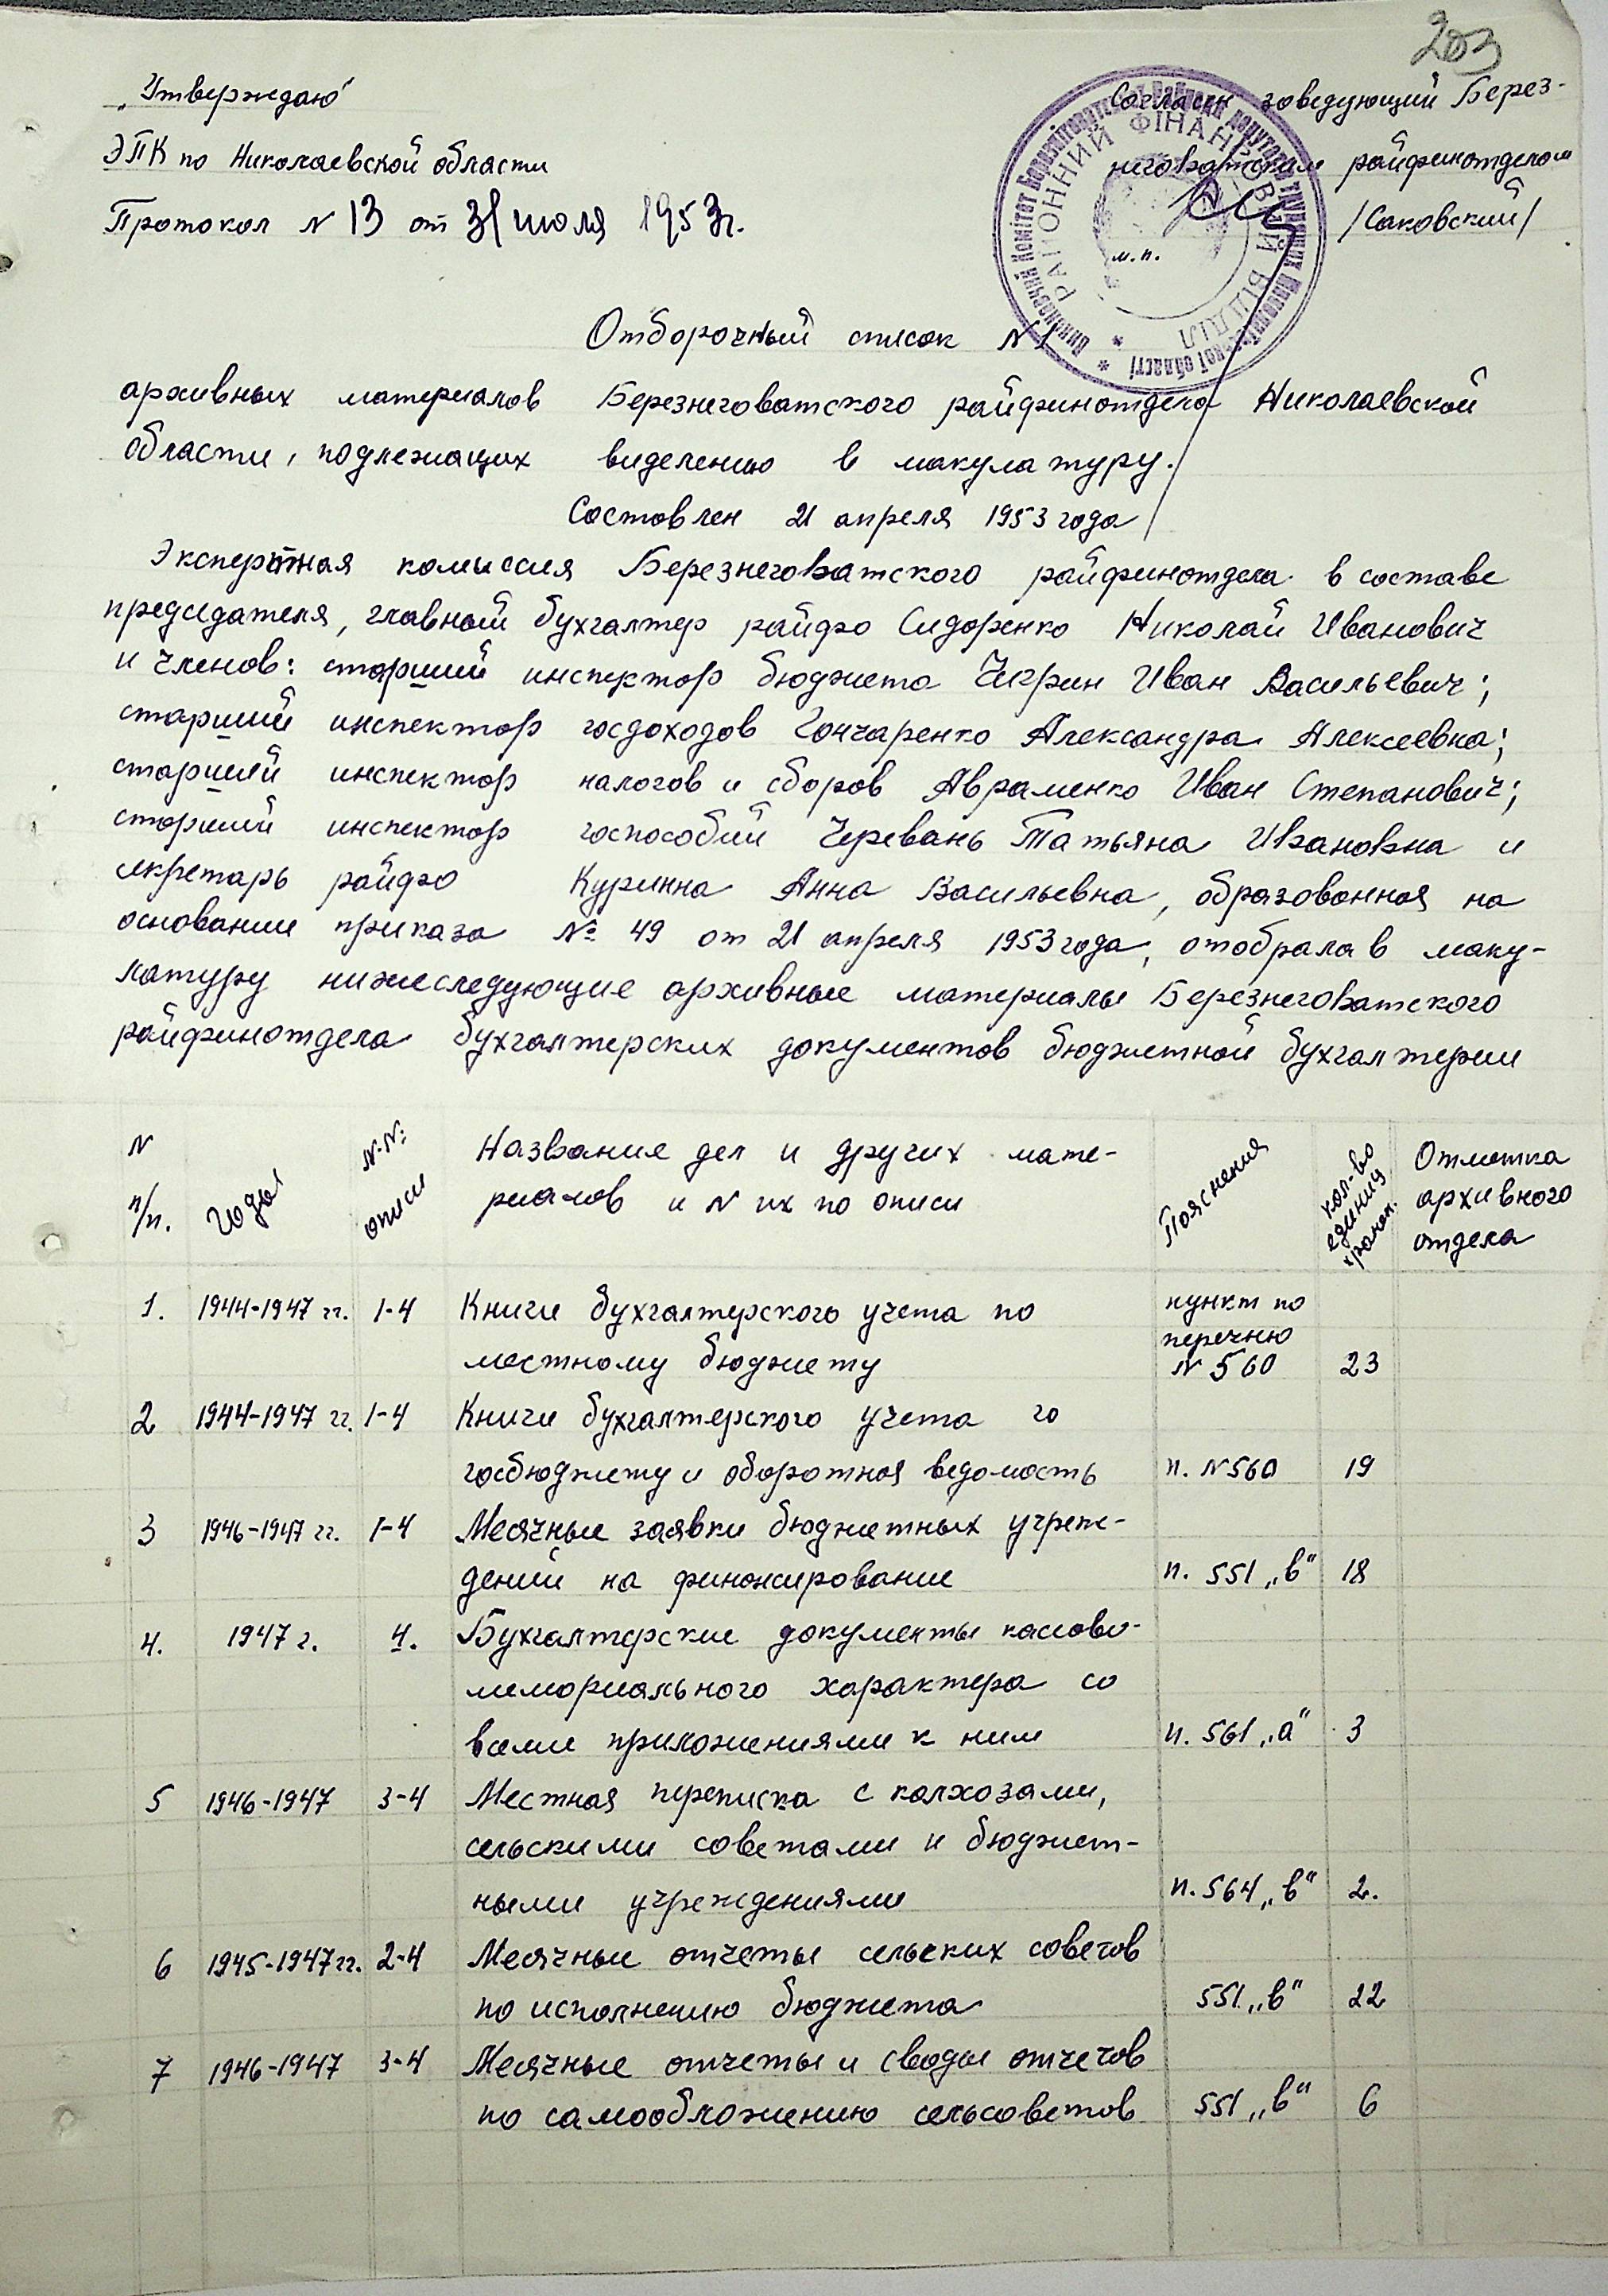 203
„Утверждаю"
ЭПК по Николаевской области
Протокол N 13 от 31 июля 1953г.
Согласен заведующий Берез-
неговатским райфинотделом
/Саковский/
м.п.
РАЙОННИЙ ФІНАНСОВИЙ ВІДДІЛ
Отборочный список N 1
архивных материалов Березнеговатского райфинотдела Николаевской
области, подлежащих виделению в макулатуру.
Составлен 21 апреля 1953 года
Экспертная комиссия Березнеговатского райфинотдела в составе
председателя, главный бухгалтер райфо Сидоренко Николай Иванович
и членов: старший инспектор бюджета Чигрин Иван Васильевич;
старший инспектор госдоходов Гончаренко Александра Алексеевна;
старший инспектор налогов и сборов Авраменко Иван Степанович;
старший инспектор госпособий Черевань Татьяна Ивановна и
секретарь райфо Куринна Анна Васильевна, образованная на
основании приказа № 49 от 21 апреля 1953 года, отобрала в маку-
латуру нижеследующие архивные материалы Березнеговатского
райфинотдела бухгалтерских документов бюджетной бухгалтерии
N п/п. Годы N-N: описи Название дел и других мате-
риалов и N их по описи Пояснения кол-во единиц хранен. Отметка архивного отдела
1. 1944-1947 гг. 1-4 Книги бухгалтерского учета по пункт по
местному бюджету перечню N 560 23
2 1944-1947 гг. 1-4 Книги бухгалтерского учета го
госбюджету и оборотная ведомость п. N 560 19
3 1946-1947 гг. 1-4 Месячные заявки бюджетных учреж-
дений на финонсирование п. 551 „в" 18
4. 1947 г. 4. Бухгалтерские документы кассово-
мемориального характера со
всеми приложениями к ним п. 561 „а" 3
5 1946-1947 3-4 Местная переписка с колхозами,
сельскими советами и бюджет-
ными учреждениями п. 564 „в" 2.
6 1945-1947 гг. 2-4 Месячные отчеты сельских советов
по исполнению бюджета 551 „в" 22
7 1946-1947 3-4 Месячные отчеты и своды отчетов
по самообложению сельсоветов 551 „в" 6